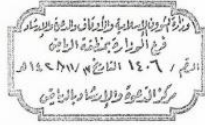 وزارة الشؤون الإسلامية والأوقاف والدعوة والإرشاد
فرع الوزارة بمنطقة الرياض
الرقم / ١٤٠٦ التاريخ ١٤٢٨/١١/٧ هـ
مركز الدعوة والإرشاد بالرياض